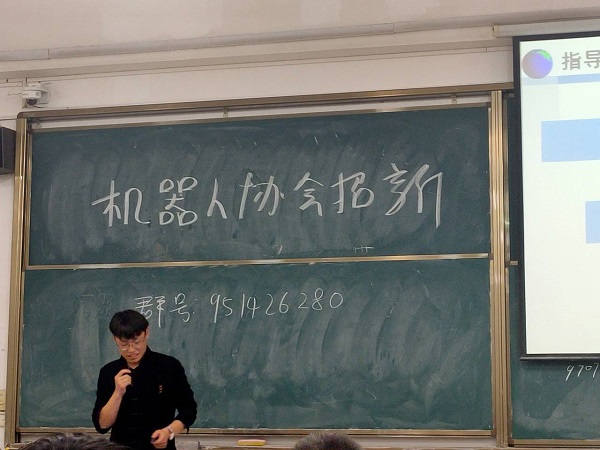 机器人协会招新
群号:951426280
指导
9707